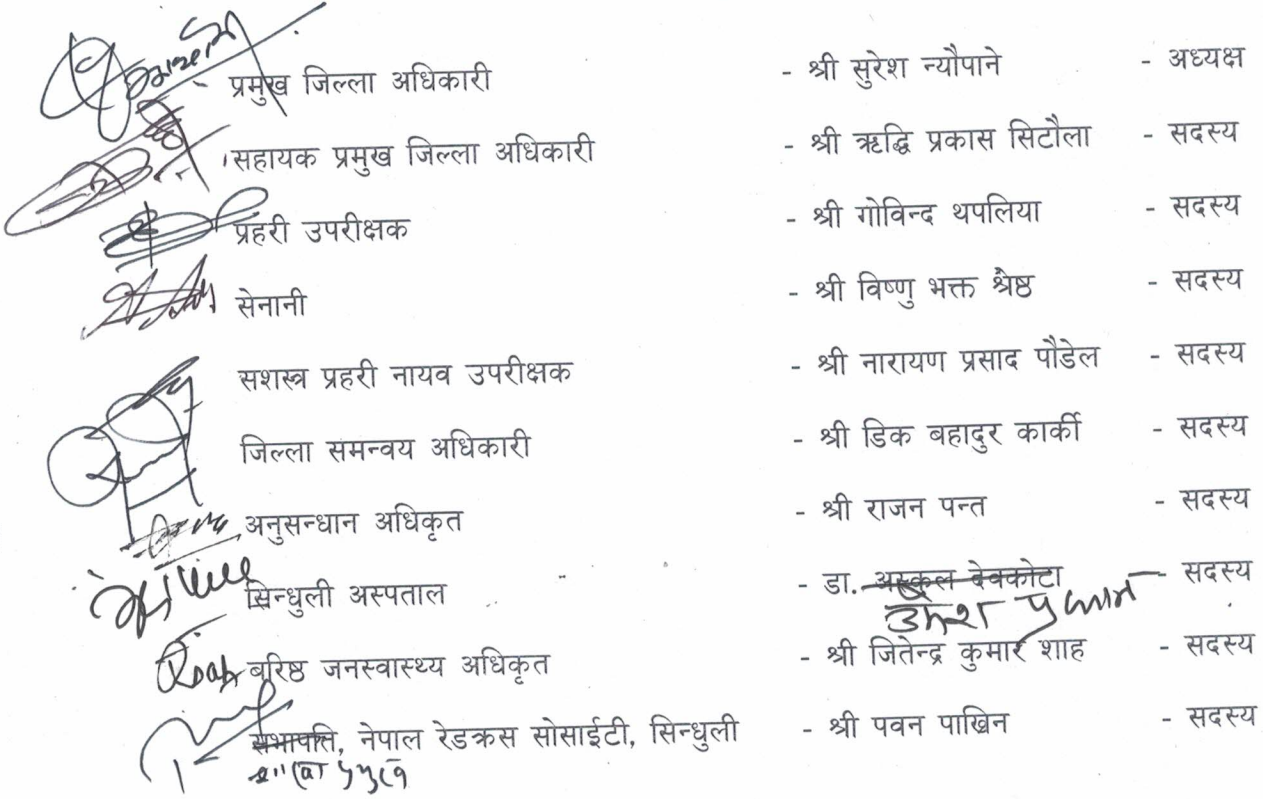 प्रमुख जिल्ला अधिकारी - श्री सुरेश न्यौपाने - अध्यक्ष
सहायक प्रमुख जिल्ला अधिकारी - श्री ऋद्धि प्रकास सिटौला - सदस्य
प्रहरी उपरीक्षक - श्री गोविन्द थपलिया - सदस्य
सेनानी - श्री विष्णु भक्त श्रेष्ठ - सदस्य
सशस्त्र प्रहरी नायव उपरीक्षक - श्री नारायण प्रसाद पौडेल - सदस्य
जिल्ला समन्वय अधिकारी - श्री डिक बहादुर कार्की - सदस्य
अनुसन्धान अधिकृत - श्री राजन पन्त - सदस्य
सिन्धुली अस्पताल - डा. देवकोटा - सदस्य
बरिष्ठ जनस्वास्थ्य अधिकृत - श्री जितेन्द्र कुमार शाह - सदस्य
सभापति, नेपाल रेडक्रस सोसाईटी, सिन्धुली - श्री पवन पाख्रिन - सदस्य